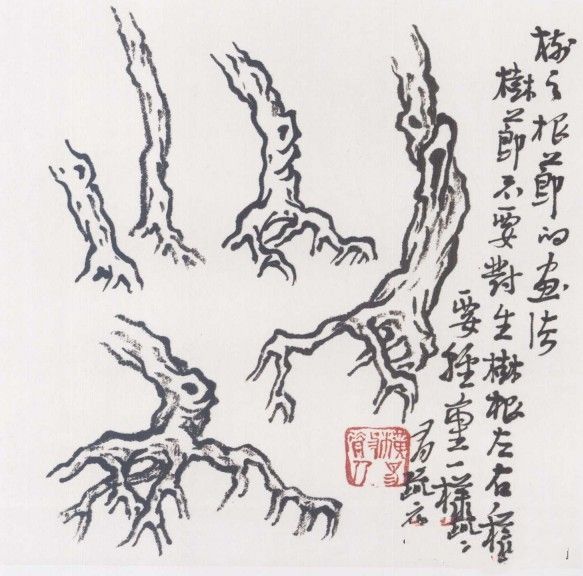 树之根節的画法
樹節不要對生樹根左右穩
要重一樣